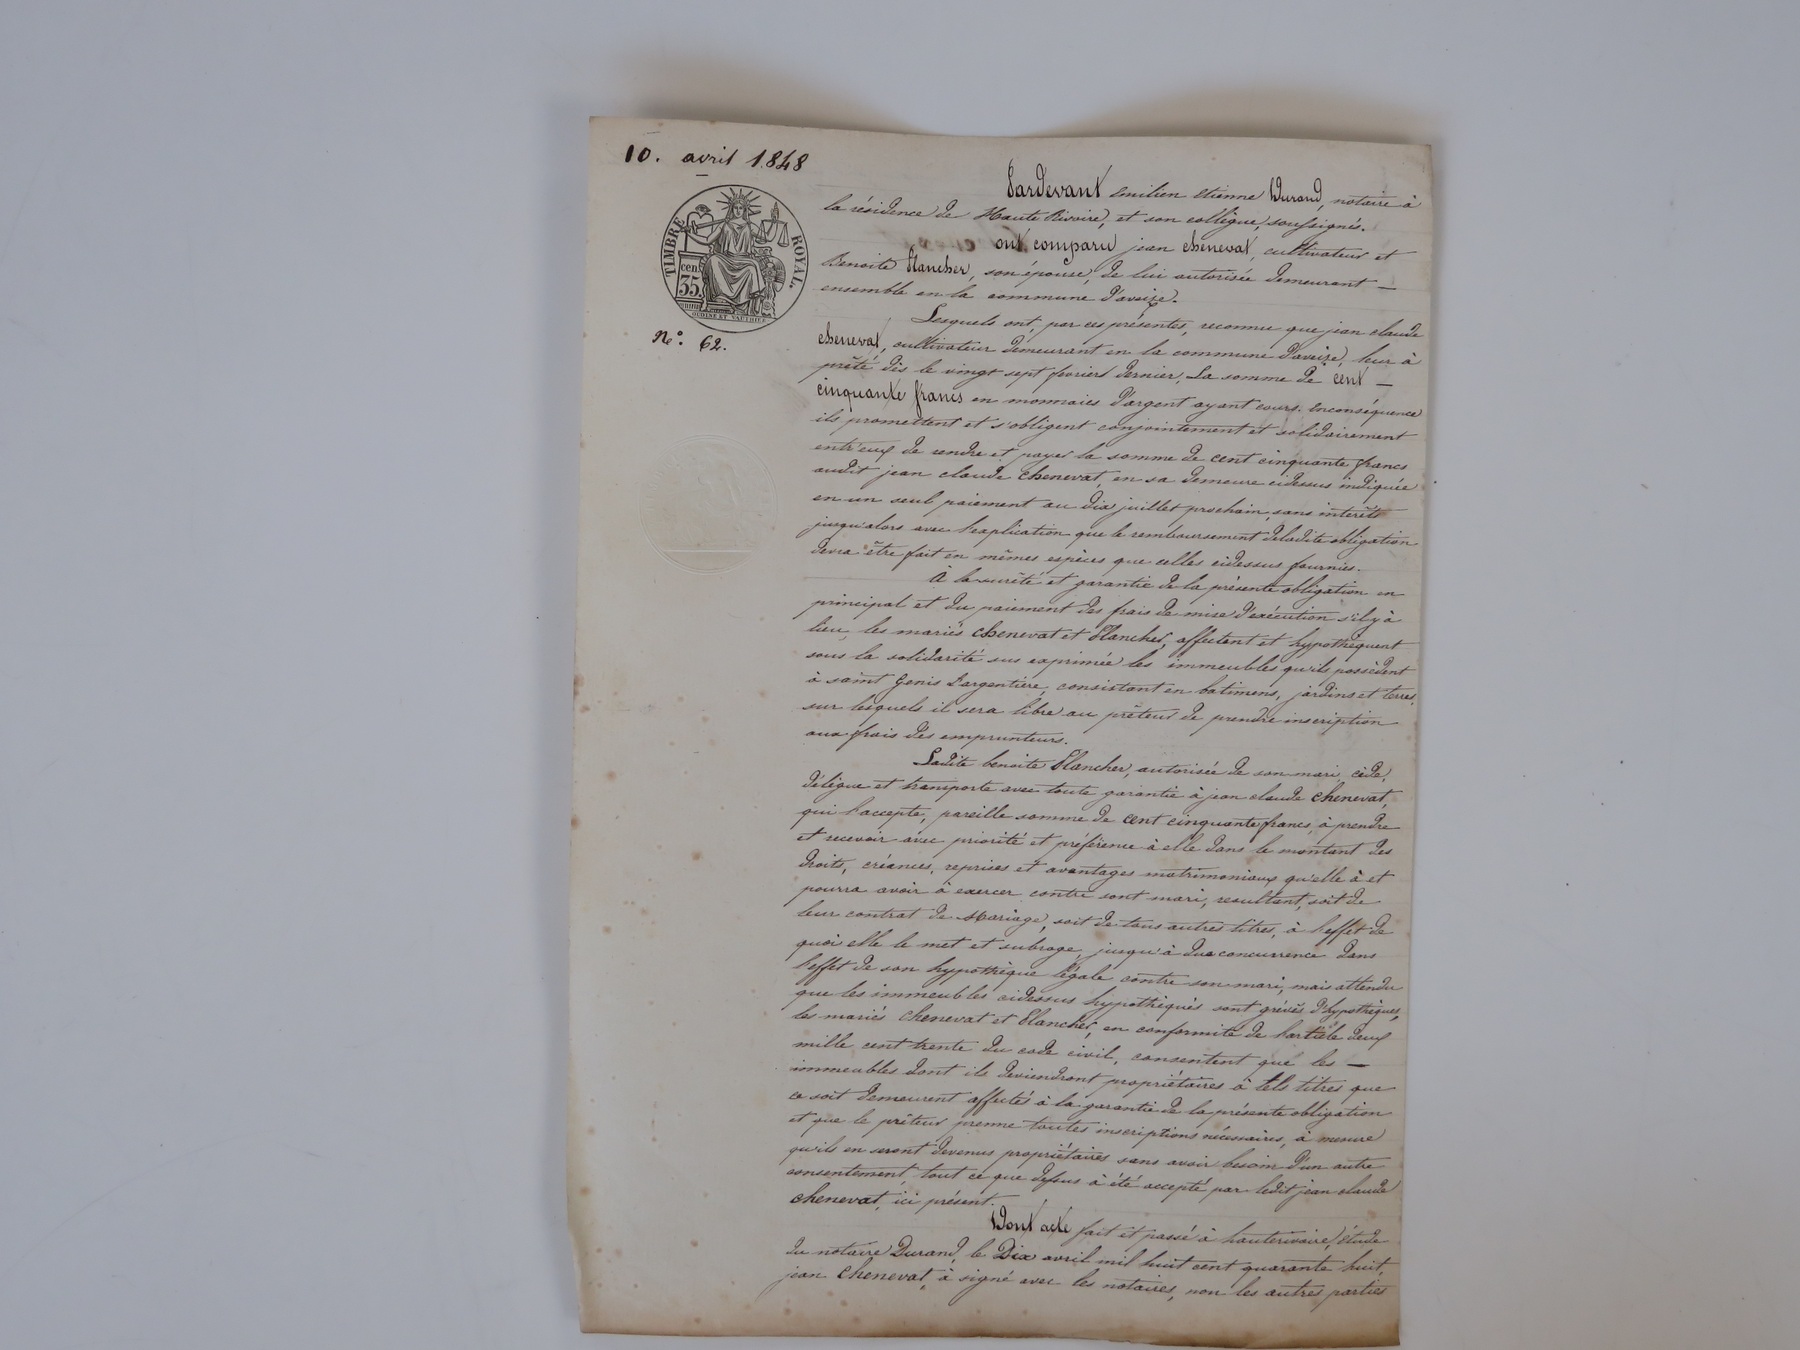 10. avril 1848
TIMBRE ROYAL.
cen
35
OUDINE ET VAUTHIER
N.° 62.
Pardevant Emilien Etienne Durand, notaire à
la résidence de Haute Rivoire, et son collègue, soussignés.
ont comparu jean chenevat, cultivateur et
Benoite Blancher, son épouse, de lui autorisée demeurant —
ensemble en la commune d'aveize.
Lesquels ont, par ces présentes, reconnu que jean claude
chenevat, cultivateur demeurant en la commune d'aveize, leur à
prêté dès le vingt sept fevrier dernier, la somme de cent —
cinquante francs en monnaies d'argent ayant cours. Enconséquence
ils promettent et s'obligent conjointement et solidairement
entr'eux de rendre et payer la somme de cent cinquante francs
audit jean claude chenevat, en sa demeure cidessus indiquée
en un seul paiement au dix juillet prochain, sans intérêts
jusqu'alors avec l'explication que le remboursement deladite obligation
devra être fait en mêmes espèces que celles cidessus fournies.
À la sureté et garantie de la présente obligation en
principal et du paiement des frais de mise d'exécution s'il y à
lieu, les mariés chenevat et Blancher, affectent et hypothèquent
sous la solidarité sus exprimée les immeubles qu'ils possèdent
à saint Genis Largentière, consistant en batimens, jardins et terres,
sur lesquels il sera libre au prêteur de prendre inscription
aux frais des emprunteurs.
Ladite benoite Blancher, autorisée de son mari, cède,
délègue et transporte avec toute garantie à jean claude chenevat,
qui l'accepte, pareille somme de cent cinquante francs, à prendre
et recevoir avec priorité et préférence à elle dans le montant des
droits, créances, reprises et avantages matrimoniaux qu'elle à et
pourra avoir à exercer contre sont mari, resultant, soit de
leur contrat de Mariage, soit de tous autres titres, à l'effet de
quoi elle le met et subroge, jusqu'à due concurrence dans
l'effet de son hypothèque légale contre son mari, mais attendu
que les immeubles cidessus hypothéqués sont grévés d'hypothèques,
les mariés chenevat et Blancher, en conformité de l'article deux
mille cent trente du code civil, consentent que les —
immeubles dont ils deviendront propriétaires à tels titres que
ce soit demeurent affectés à la garantie de la présente obligation
et que le prêteur prenne toutes inscriptions nécessaires, à mesure
qu'ils en seront devenus propriétaires sans avoir besoin d'un autre
consentement, tout ce que dessus à été accepté par ledit jean claude
chenevat, ici présent.
Dont acte fait et passé à hauterivoire, étude
du notaire Durand, le Dix avril mil huit cent quarante huit,
jean chenevat, à signé avec les notaires, non les autres parties